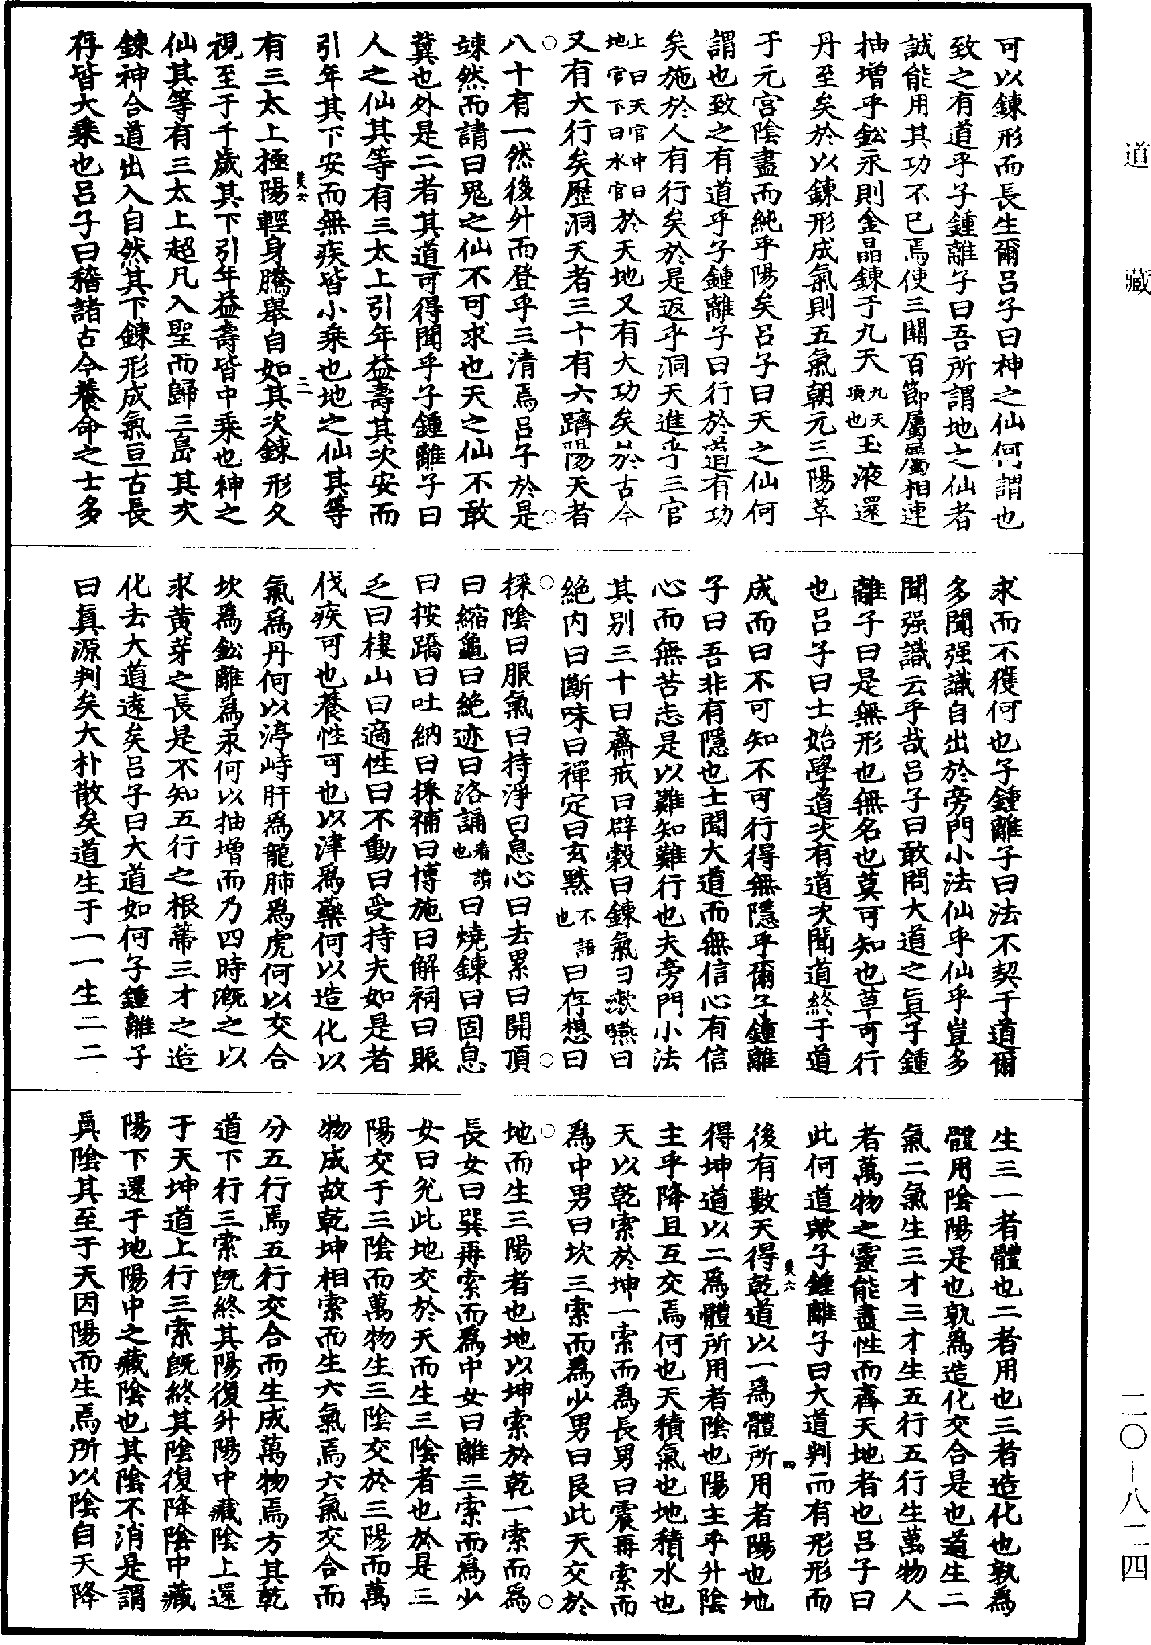 道藏
二〇-八二四
可以鍊形而長生爾呂子曰神之仙何謂也
致之有道乎子鍾離子曰吾所謂地之仙者
誠能用其功不已焉使三關百節屬屬相連
抽增乎鈆汞則金晶鍊于九天九天頂也玉液還
丹至矣於以鍊形成氣則五氣朝元三陽萃
于元宮陰盡而純乎陽矣呂子曰天之仙何
謂也致之有道乎子鍾離子曰行於道有功
矣施於人有行矣於是返乎洞天進乎三官
上曰天官中曰地官下曰水官於天地又有大功矣於古今
又有大行矣歷洞天者三十有六躋陽天者
八十有一然後升而登乎三清焉呂子於是
竦然而請曰鬼之仙不可求也天之仙不敢
冀也外是二者其道可得聞乎子鍾離子曰
人之仙其等有三太上引年益壽其次安而
引年其下安而無疾皆小乘也地之仙其等
有三太上極陽輕身騰舉自如其次鍊形久
視至于千歲其下引年益壽皆中乘也神之
仙其等有三太上超凡入聖而歸三島其次
鍊神合道出入自然其下鍊形成氣亘古長
存皆大乘也呂子曰稽諸古今養命之士多
求而不獲何也子鍾離子曰法不契于道爾
多聞强識自出於旁門小法仙乎仙乎豈多
聞强識云乎哉呂子曰敢問大道之真子鍾
離子曰是無形也無名也莫可知也莫可行
也呂子曰士始學道次有道次聞道終于道
成而曰不可知不可行得無隱乎爾子鍾離
子曰吾非有隱也士聞大道而無信心有信
心而無苦志是以難知難行也夫旁門小法
其別三十曰齋戒曰辟穀曰鍊氣曰漱嚥曰
絕內曰斷味曰禪定曰玄默不語也曰存想曰
採陰曰服氣曰持淨曰息心曰去累曰開頂
曰縮龜曰絕迹曰洛誦者讀也曰燒鍊曰固息
曰按蹻曰吐納曰採補曰博施曰解祠曰賑
乏曰棲山曰適性曰不動曰受持夫如是者
伐疾可也養性可也以津為藥何以造化以
氣為丹何以渟峙肝為龍肺為虎何以交合
坎為鈆離為汞何以抽增而乃四時溉之以
求黃芽之長是不知五行之根蔕三才之造
化去大道遠矣呂子曰大道如何子鍾離子
曰真源判矣大朴散矣道生于一一生二二
生三一者體也二者用也三者造化也孰為
體用陰陽是也孰為造化交合是也道生二
氣二氣生三才三才生五行五行生萬物人
者萬物之靈能盡性而齊天地者也呂子曰
此何道歟子鍾離子曰大道判而有形形而
後有數天得乾道以一為體所用者陽也地
得坤道以二為體所用者陰也陽主乎升陰
主乎降且互交焉何也天積氣也地積水也
天以乾索於坤一索而為長男曰震再索而
為中男曰坎三索而為少男曰艮此天交於
地而生三陽者也地以坤索於乾一索而為
長女曰巽再索而為中女曰離三索而為少
女曰兌此地交於天而生三陰者也於是三
陽交于三陰而萬物生三陰交於三陽而萬
物成故乾坤相索而生六氣焉六氣交合而
分五行焉五行交合而生成萬物焉方其乾
道下行三索既終其陽復升陽中藏陰上還
于天坤道上行三索既終其陰復降陰中藏
陽下還于地陽中之藏陰也其陰不消是謂
真陰其至于天因陽而生焉所以陰自天降